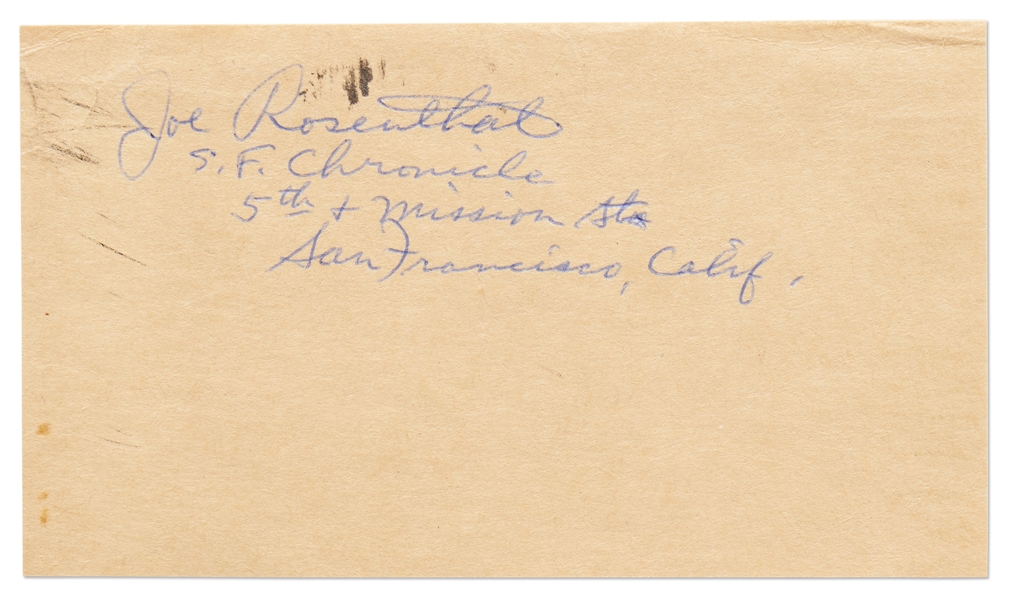 Joe Rosenthal
S.F. Chronicle
5th + Mission Sts
San Francisco, Calif.